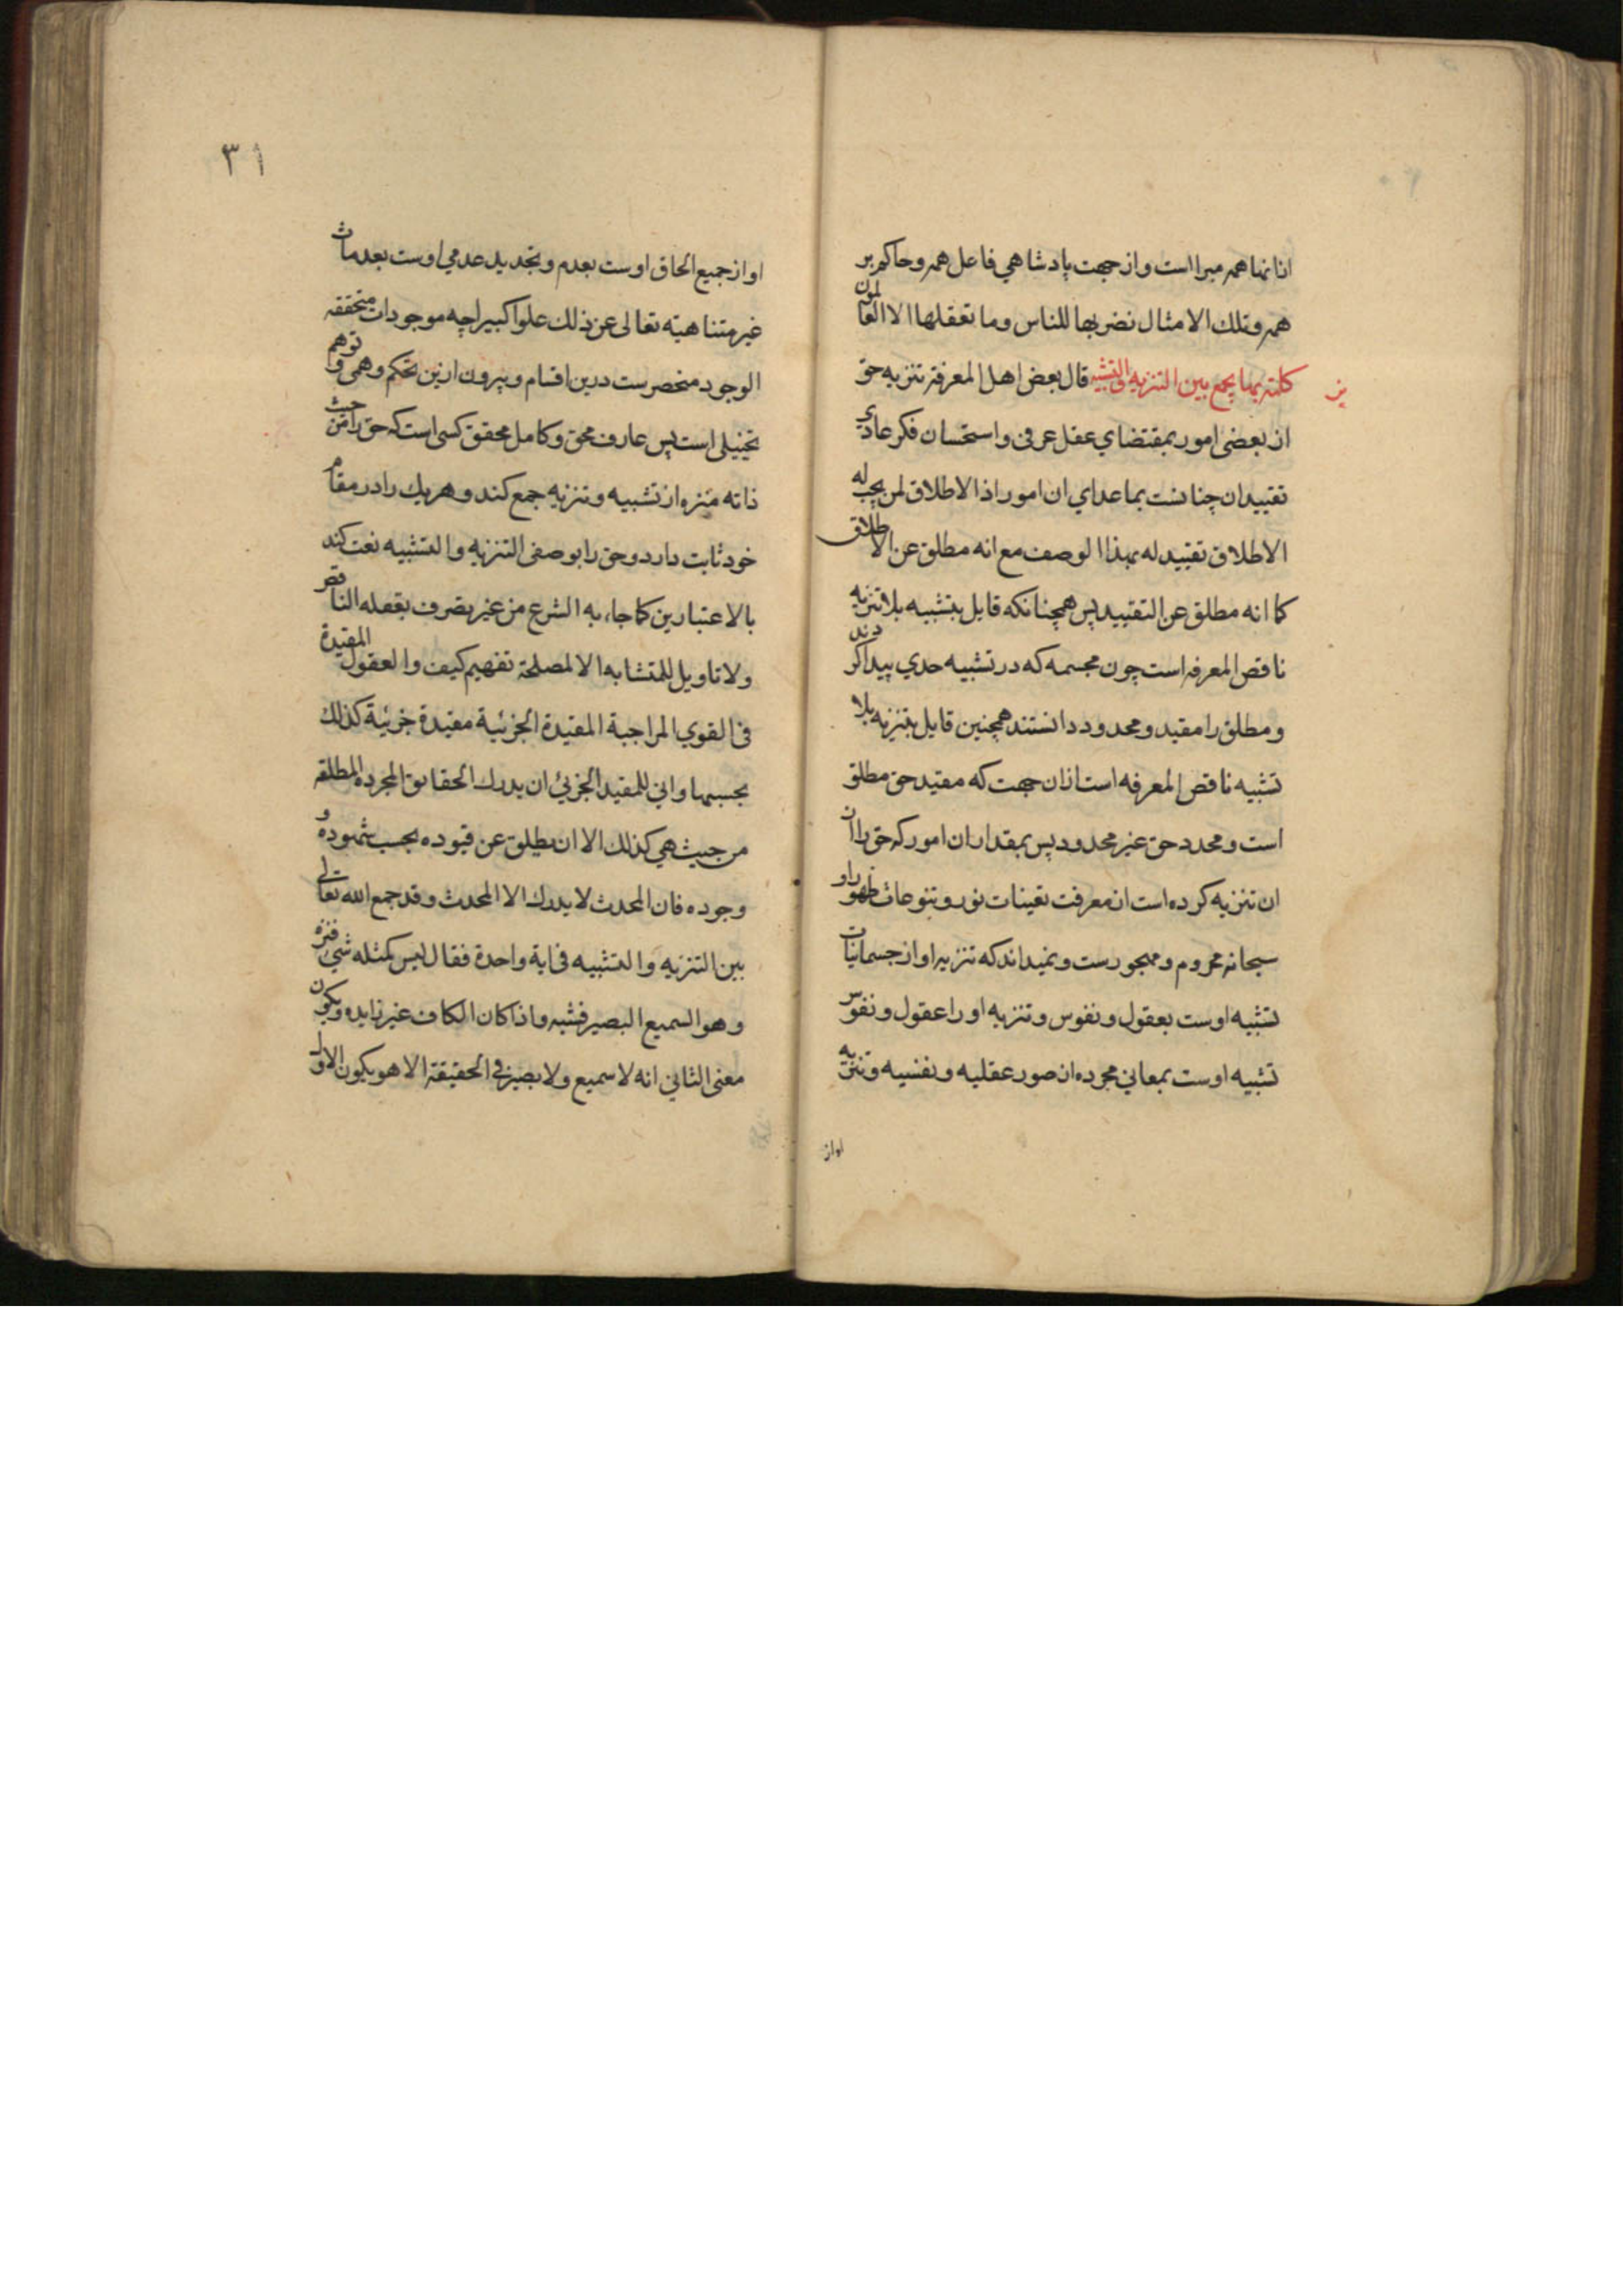 از انها همه مبرا است و از جهت پادشاهي فاعل همه و حاكم بر
همه و تلك الامثال نضربها للناس وما تعقلها الا العالمون
كلمة بها يجمع بين التنزيه والتشبيه قال بعض اهل المعرفة تنزيه حق
از بعضى امور بمقتضاي عقل عرفى و استحسان فكر عادي
تقييد ان جنابست بماعداي ان امور اذا الاطلاق لمن يجب له
الاطلاق تقييد له بهذا الوصف مع انه مطلق عن الاطلاق
كما انه مطلق عن التقييد پس همچنانكه قايل بتشبيه بلا تنزيه
ناقص المعرفه است چون مجسمه كه در تشبيه حدي پيدا كردند
و مطلق را مقيد و محدود دانستند همچنين قايل بتنزيه بلا
تشبيه ناقص المعرفه است ازان جهت كه مقيد حق مطلق
است و محدد حق غير محدود پس بمقدار ان امور كه حق را از
ان تنزيه كرده است از معرفت تعينات نور و تنوعات ظهور او
سبحانه محروم و مهجورست و نميداند كه تنزيه او از جسمانيات
تشبيه اوست بعقول و نفوس و تنزيه او را عقول و نفوس
تشبيه اوست بمعاني مجرده از صور عقليه و نفسيه و تنزيه
او از
٣١
او از جميع الحاق اوست بعدم و تحديد عدمي اوست بعدمات
غير متناهيه تعالى عن ذلك علوا كبيرا چه موجودات متحققه
الوجود منحصرست درين اقسام و بيرون ازين تحكم وهمى و توهم
تخييلى است پس عارف محق و كامل محقق كسى است كه حق را من حيث
ذاته منزه از تشبيه و تنزيه جمع كند و هر يك را در مقام
خود ثابت دارد و حق را بوصفى التنزيه والتشبيه نعت كند
بالاعتبارين كما جاء به الشرع من غير تصرف بعقله الناقص
ولا تاويل للمتشابه الا لمصلحة تفهيم كيف والعقول المقيدة
فى القوي المزاجية المقيدة الجزئية مقيدة جزئية كذلك
بحسبها واني للمقيد الجزئي ان يدرك الحقائق المجرده المطلقه
من حيث هي كذلك الا ان يطلق عن قيوده بحسب شهوده و
وجوده فان المحدث لا يدرك الا المحدث وقد جمع الله تعالى
بين التنزيه والتشبيه فى اية واحدة فقال ليس كمثله شي فنزه
وهو السميع البصير فشبه واذا كان الكاف غير زايده ويكون
معنى الثاني انه لا سميع ولا بصير في الحقيقة الا هو يكون الاول